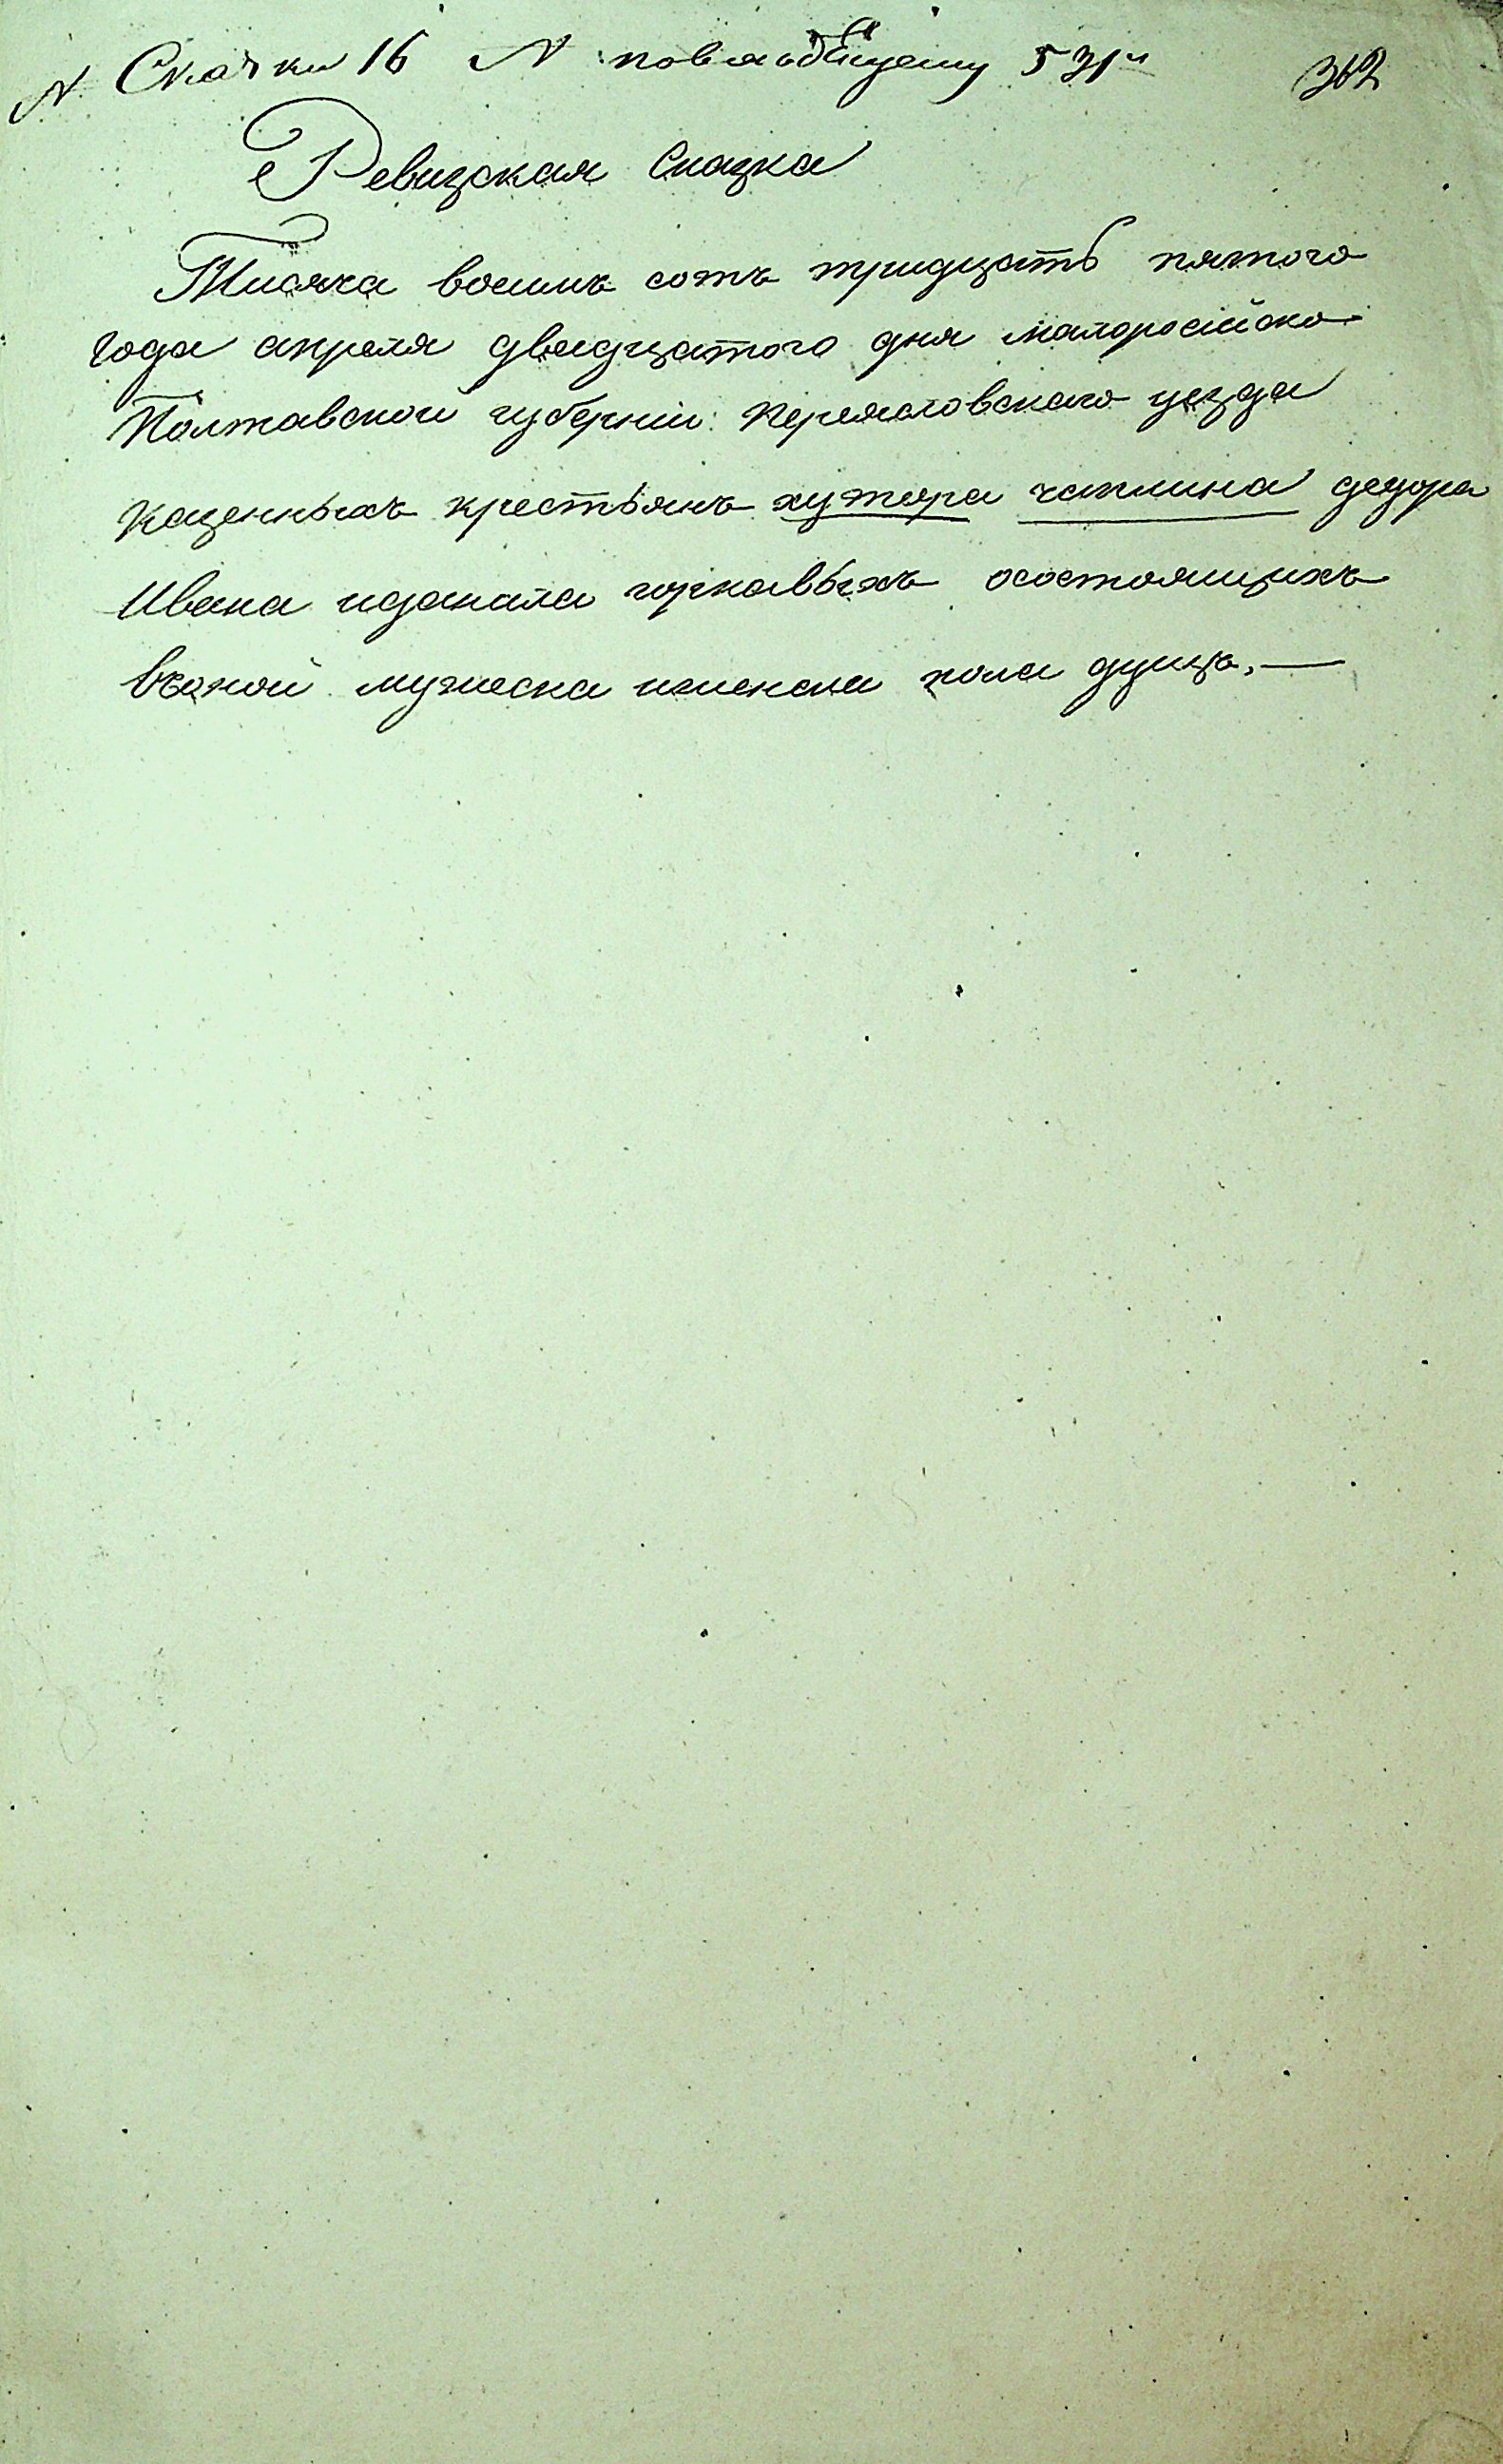 № Скаски 16 № повсяобщему 531й 362
Ревизская Сказка
Тисяча восимъ сотъ тридцать пятого
года апреля двадцатого дня малоросійско
Полтавской губерніи Переясловского уезда
казенныхъ крестьянъ хутора чаплина федора
Ивана иданила горкавыхъ осостоящихъ
вконой мужеска иженска пола душъ. —